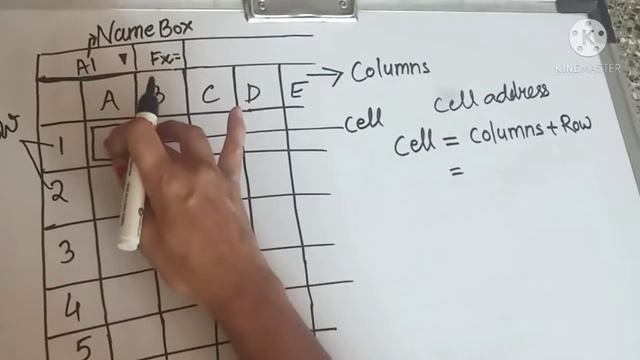 Name Box
A1 ▼ Fx=
A B C D E → Columns
cell address
cell
Cell = Columns + Row
=
1
2
3
4
5
KINEMASTER